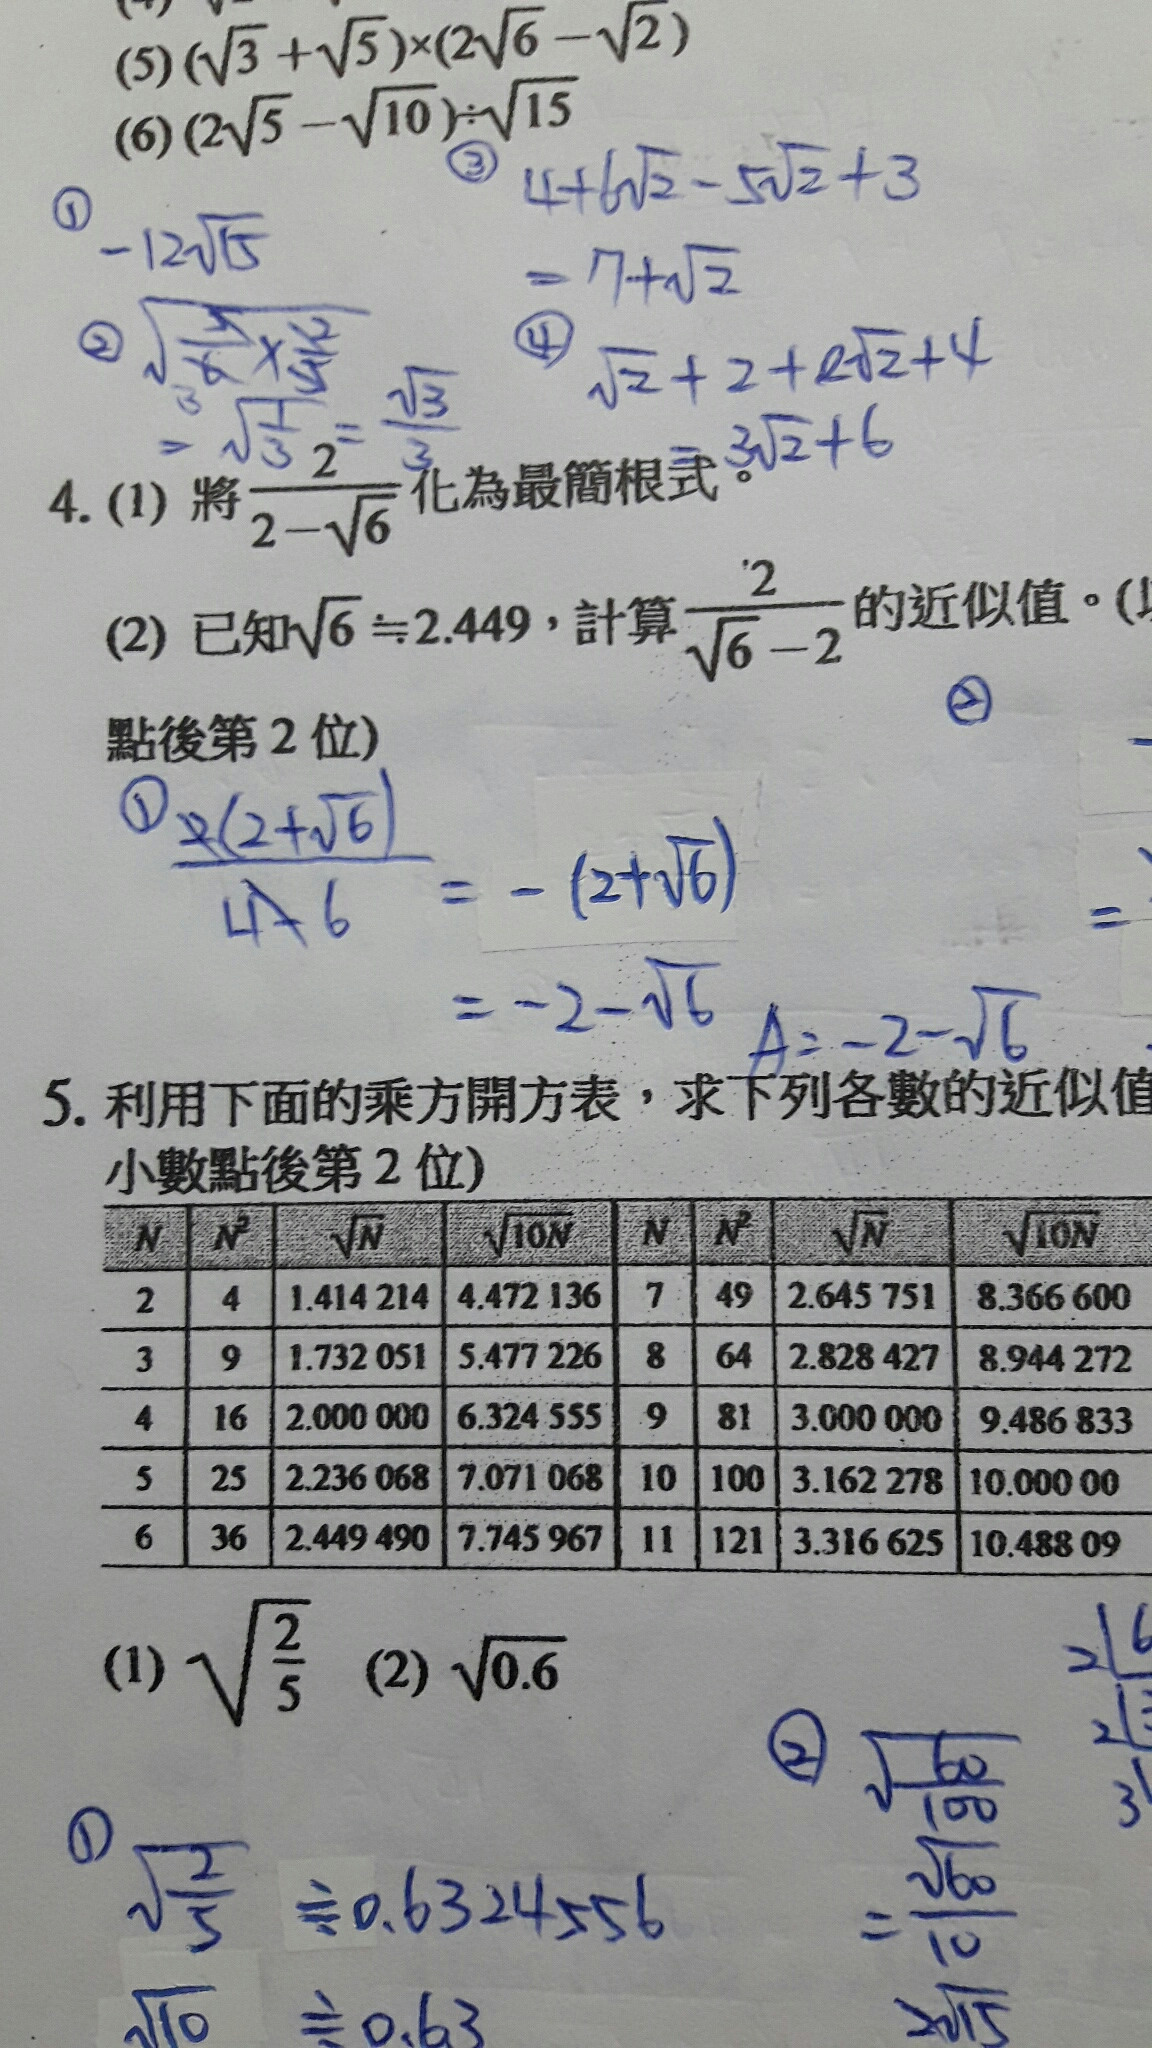 (5) (√3 + √5)×(2√6 − √2)
(6) (2√5 − √10)÷√15
① −12√15
② √(3/6 × 2/3)
= √(1/3) = √3/3
③ 4+6√2 − 5√2 + 3
= 7+√2
④ √2 + 2 + 2√2 + 4
= 3√2 + 6
4. (1) 將 2/(2−√6) 化為最簡根式。
(2) 已知√6≒2.449，計算 2/(√6−2) 的近似值。(
點後第 2 位)
① 2(2+√6)/(4−6) = −(2+√6)
= −2−√6 A = −2−√6
②
=
5. 利用下面的乘方開方表，求下列各數的近似值
小數點後第 2 位)
N N² √N √10N N N² √N √10N
2 4 1.414 214 4.472 136 7 49 2.645 751 8.366 600
3 9 1.732 051 5.477 226 8 64 2.828 427 8.944 272
4 16 2.000 000 6.324 555 9 81 3.000 000 9.486 833
5 25 2.236 068 7.071 068 10 100 3.162 278 10.000 00
6 36 2.449 490 7.745 967 11 121 3.316 625 10.488 09
(1) √(2/5) (2) √0.6
① √(2/5) ≒0.6324556
√10 ≒0.63
② √(60/100)
= √60/10
2√15